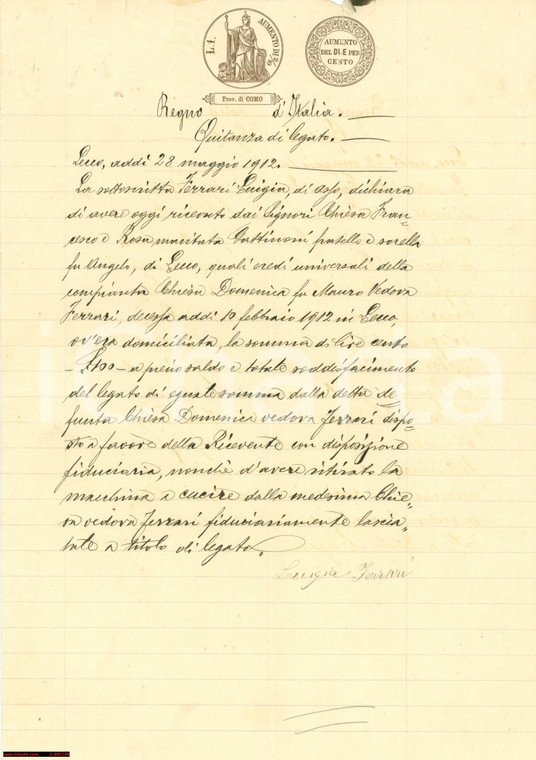 L. 1.
AUMENTO DI 2/10
AUMENTO
DEL DI E PER
CENTO
Prov. di COMO
Regno d'Italia.
Quitanza di legato.
Lecco, addi 28 maggio 1912.
La sottoscritta Ferrari Luigia, di Asso, dichiara
di avere oggi ricevuto dai Signori Chiesa Fran=
cesco e Rosa maritata Gattinoni fratello e sorella
fu Angelo, di Lecco, quali eredi universali della
compianta Chiesa Domenica fu Mauro Vedova
Ferrari, decessa addi 10 febbraio 1912 in Lecco,
ov'era domiciliata, la somma di lire cento
- £100 - a pieno saldo e totale soddisfacimento
del legato di eguale somma dalla detta de=
funta Chiesa Domenica vedova Ferrari dispo=
sto a favore della Ricevente con disposizione
fiduciaria, nonchè d'avere ritirato la
macchina a cucire dalla medesima Chie=
sa vedova Ferrari fiduciariamente lascia=
tale a titolo di legato.
Luigia Ferrari